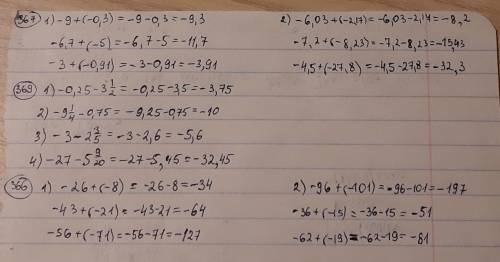 367) 1) -9+(-0,3)=-9-0,3=-9,3
-6,7+(-5)=-6,7-5=-11,7
-3+(-0,91)=-3-0,91=-3,91
2) -6,03+(-2,17)=-6,03-2,17=-8,2
-7,2+(-8,23)=-7,2-8,23=-15,43
-4,5+(-27,8)=-4,5-27,8=-32,3
369) 1) -0,25-3 1/2=-0,25-3,5=-3,75
2) -9 1/4-0,75=-9,25-0,75=-10
3) -3-2 3/5=-3-2,6=-5,6
4) -27-5 9/20=-27-5,45=-32,45
366) 1) -26+(-8)=-26-8=-34
-43+(-21)=-43-21=-64
-56+(-71)=-56-71=-127
2) -96+(-101)=-96-101=-197
-36+(-15)=-36-15=-51
-62+(-19)=-62-19=-81